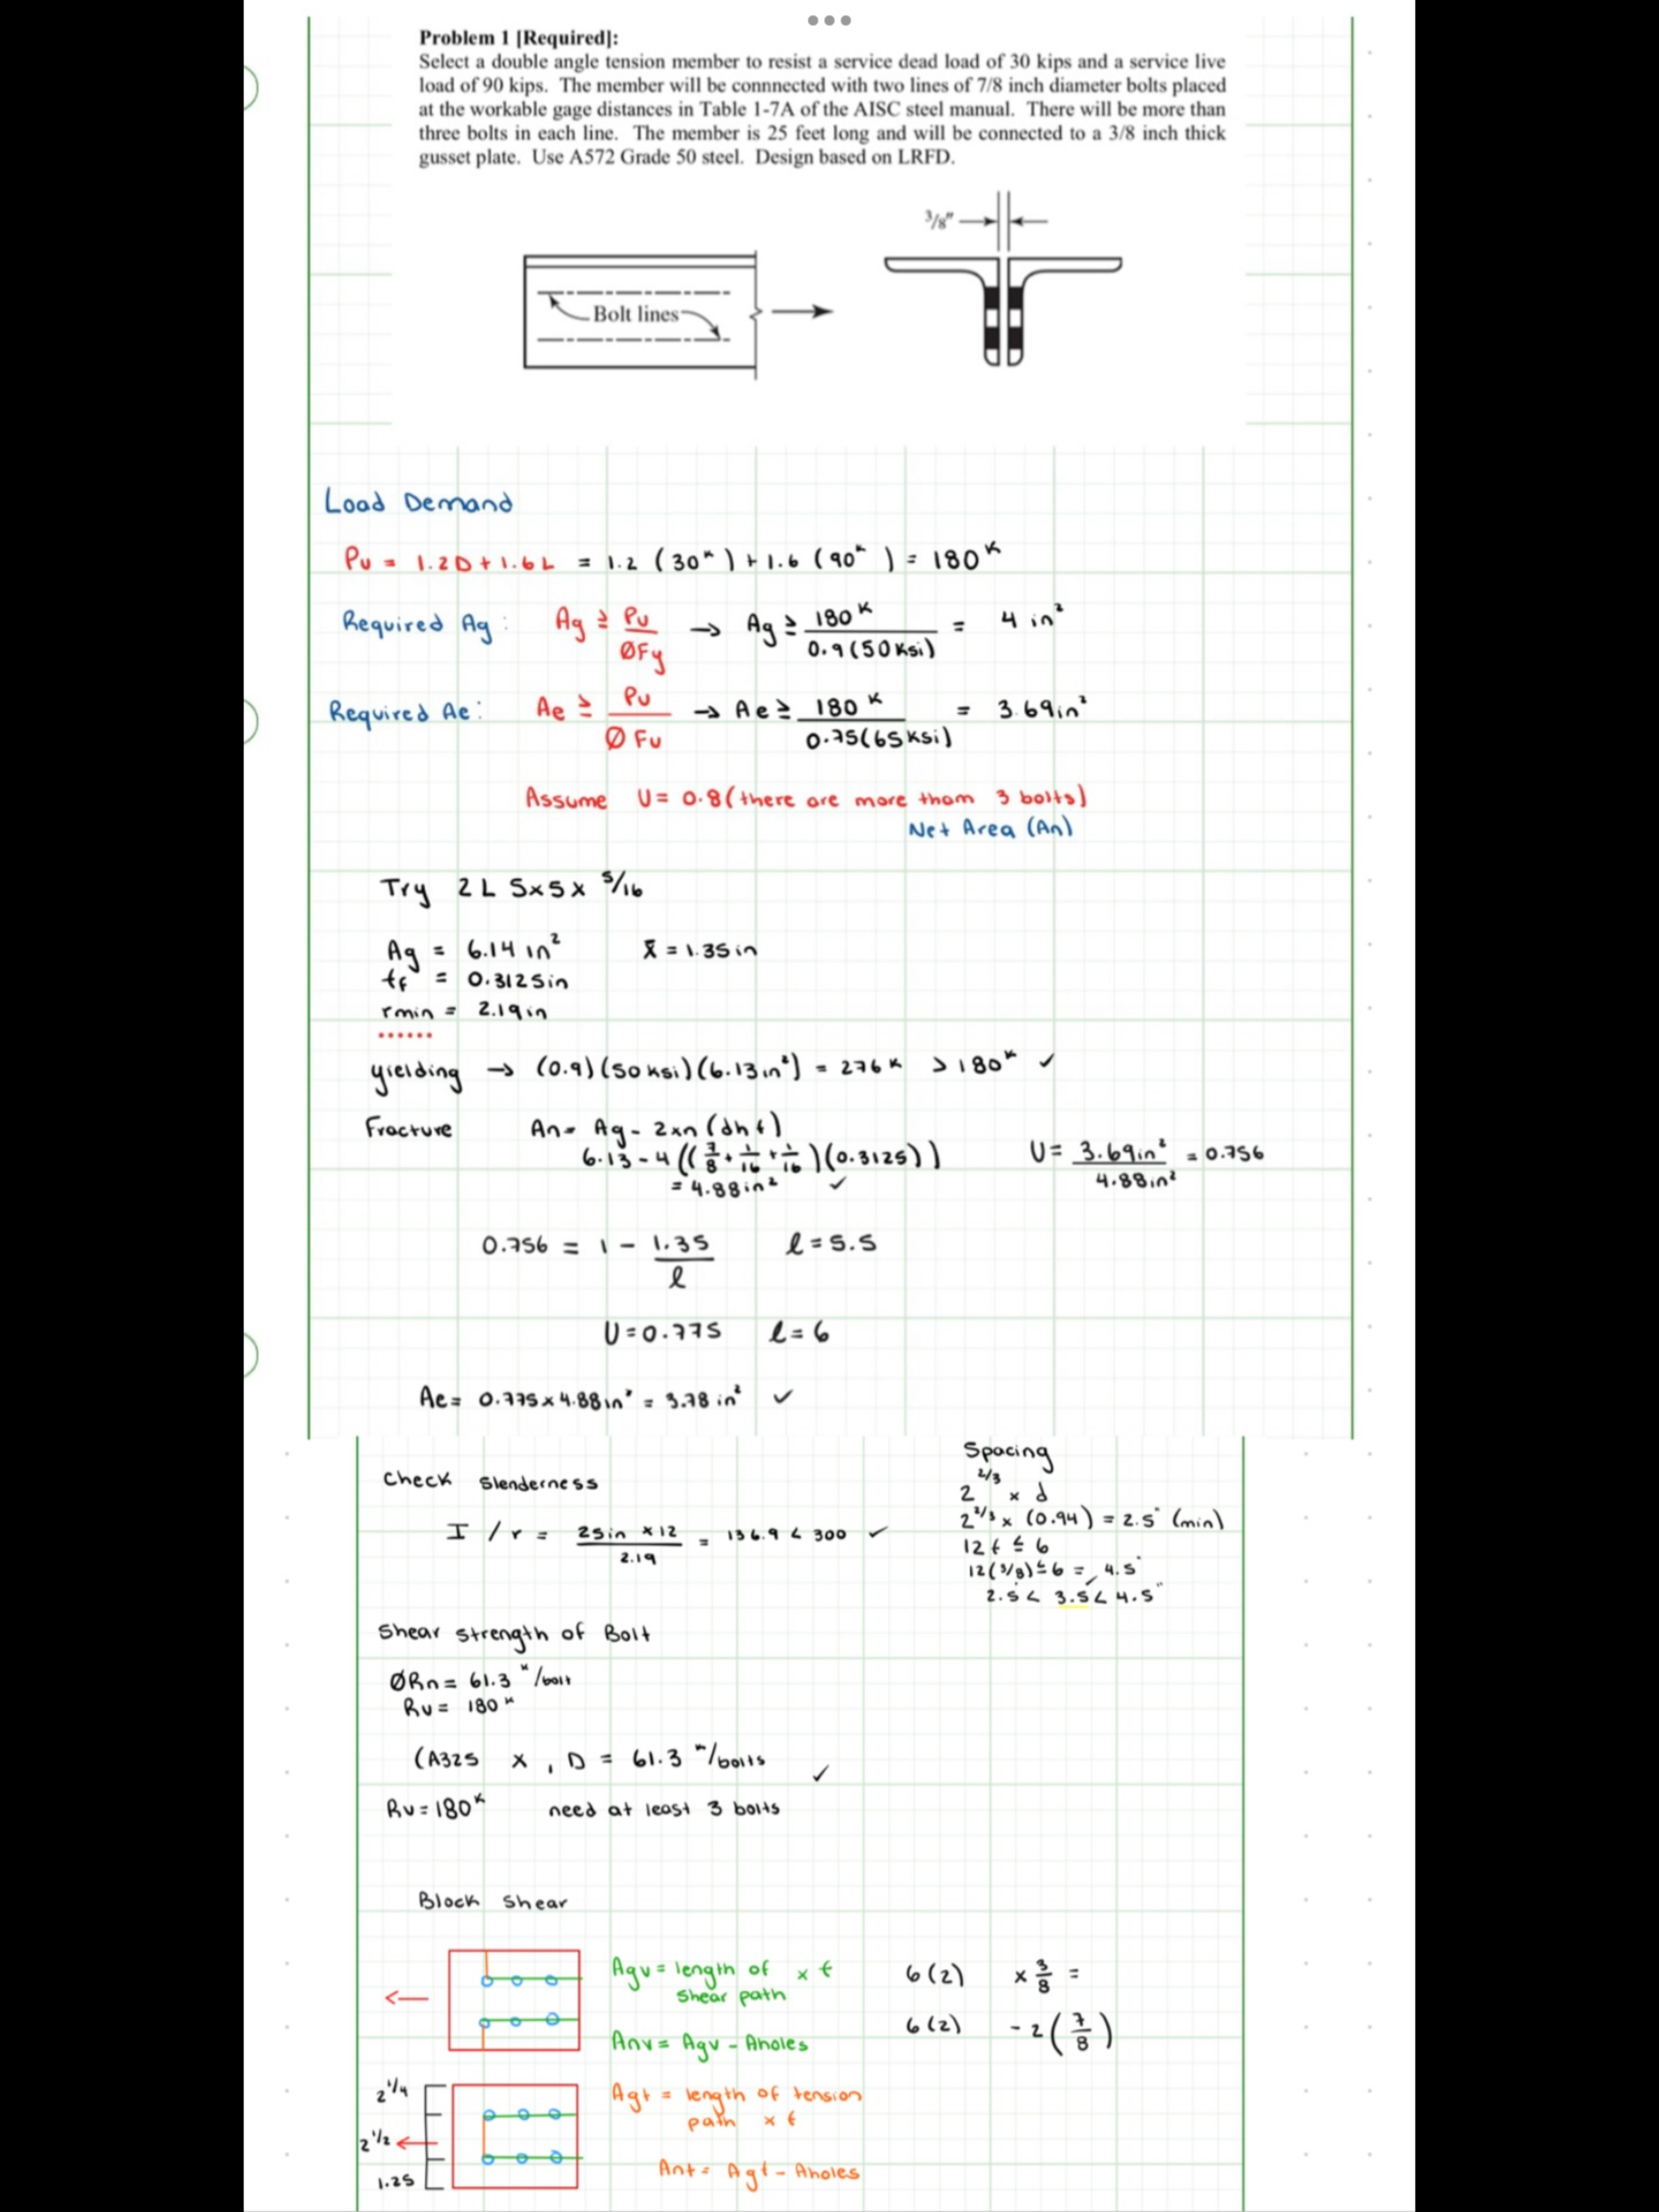 Problem 1 [Required]:
Select a double angle tension member to resist a service dead load of 30 kips and a service live
load of 90 kips. The member will be connnected with two lines of 7/8 inch diameter bolts placed
at the workable gage distances in Table 1-7A of the AISC steel manual. There will be more than
three bolts in each line. The member is 25 feet long and will be connected to a 3/8 inch thick
gusset plate. Use A572 Grade 50 steel. Design based on LRFD.
3/8"
Bolt lines
Load Demand
Pu = 1.2D + 1.6L = 1.2 (30ᴷ) + 1.6 (90ᴷ) = 180ᴷ
Required Ag: Ag ≥ Pu/ØFy → Ag ≥ 180ᴷ/0.9(50ksi) = 4 in²
Required Ae: Ae ≥ Pu/ØFu → Ae ≥ 180ᴷ/0.75(65ksi) = 3.69in²
Assume U = 0.8 (there are more than 3 bolts)
Net Area (An)
Try 2L 5x5x 5/16
Ag = 6.14 in² x̄ = 1.35in
tf = 0.3125in
rmin = 2.19in
yielding → (0.9)(50ksi)(6.13in²) = 276ᴷ > 180ᴷ ✓
Fracture An = Ag - 2xn (dht)
6.13 - 4((7/8 + 1/16 + 1/16)(0.3125)) U = 3.69in²/4.88in² = 0.756
= 4.88in² ✓
0.756 = 1 - 1.35/ℓ ℓ = 5.5
U = 0.775 ℓ = 6
Ae = 0.775 x 4.88in² = 3.78in² ✓
Spacing
Check Slenderness
2 2/3 x d
2 2/3 x (0.94) = 2.5" (min)
I / r = 25in x12/2.19 = 136.9 < 300 ✓
12t ≤ 6
12(3/8) ≤ 6 = 4.5"
2.5 < 3.5 < 4.5"
Shear strength of Bolt
ØRn = 61.3 ᴷ/bolt
Ru = 180ᴷ
(A325 X, D = 61.3 ᴷ/bolts ✓
Ru = 180ᴷ need at least 3 bolts
Block Shear
Agv = length of shear path x t
6(2) x 3/8 =
Anv = Agv - Aholes
6(2) - 2(7/8)
2 1/4
2 1/2
1.25
Agt = length of tension path x t
Ant = Agt - Aholes